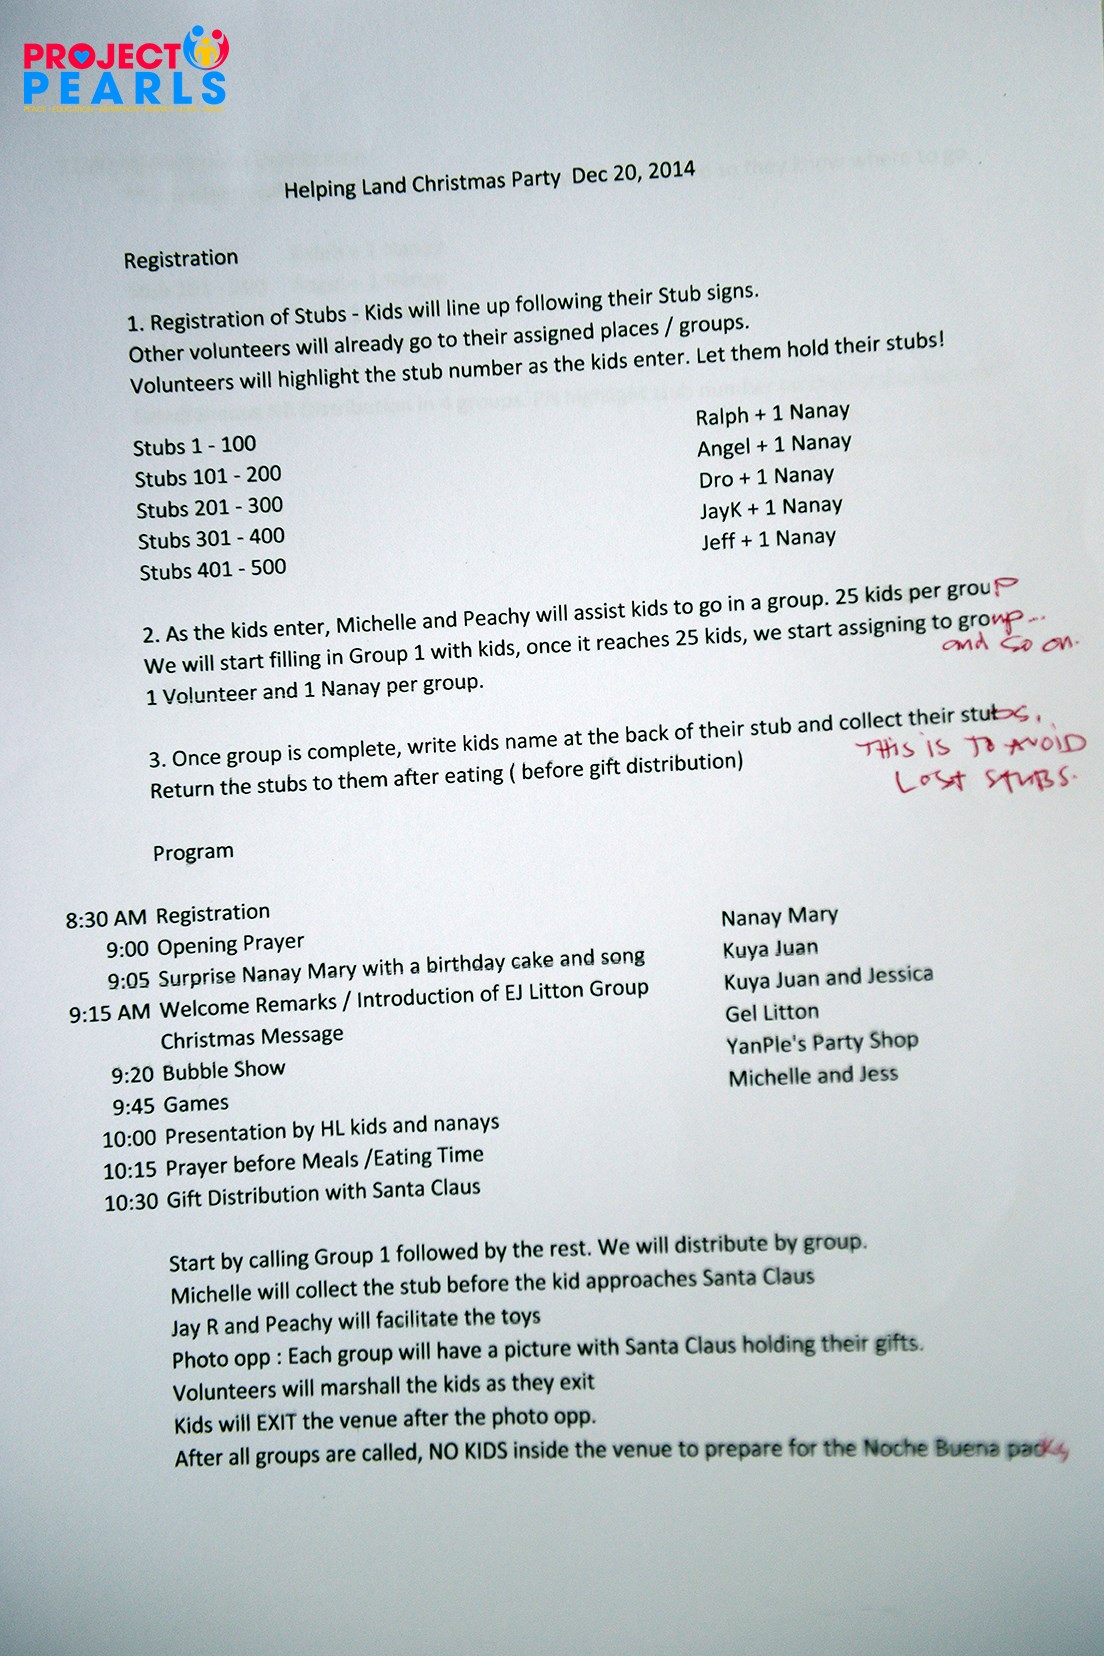 PROJECT
PEARLS
Helping Land Christmas Party Dec 20, 2014
Registration
1. Registration of Stubs - Kids will line up following their Stub signs.
Other volunteers will already go to their assigned places / groups.
Volunteers will highlight the stub number as the kids enter. Let them hold their stubs!
Stubs 1 - 100 Ralph + 1 Nanay
Stubs 101 - 200 Angel + 1 Nanay
Stubs 201 - 300 Dro + 1 Nanay
Stubs 301 - 400 JayK + 1 Nanay
Stubs 401 - 500 Jeff + 1 Nanay
2. As the kids enter, Michelle and Peachy will assist kids to go in a group. 25 kids per group
We will start filling in Group 1 with kids, once it reaches 25 kids, we start assigning to group...
and so on.
1 Volunteer and 1 Nanay per group.
3. Once group is complete, write kids name at the back of their stub and collect their stubs.
THIS IS TO AVOID
LOST STUBS.
Return the stubs to them after eating ( before gift distribution)
Program
8:30 AM Registration Nanay Mary
9:00 Opening Prayer Kuya Juan
9:05 Surprise Nanay Mary with a birthday cake and song Kuya Juan and Jessica
9:15 AM Welcome Remarks / Introduction of EJ Litton Group Gel Litton
Christmas Message YanPle's Party Shop
9:20 Bubble Show Michelle and Jess
9:45 Games
10:00 Presentation by HL kids and nanays
10:15 Prayer before Meals /Eating Time
10:30 Gift Distribution with Santa Claus
Start by calling Group 1 followed by the rest. We will distribute by group.
Michelle will collect the stub before the kid approaches Santa Claus
Jay R and Peachy will facilitate the toys
Photo opp : Each group will have a picture with Santa Claus holding their gifts.
Volunteers will marshall the kids as they exit
Kids will EXIT the venue after the photo opp.
After all groups are called, NO KIDS inside the venue to prepare for the Noche Buena packs